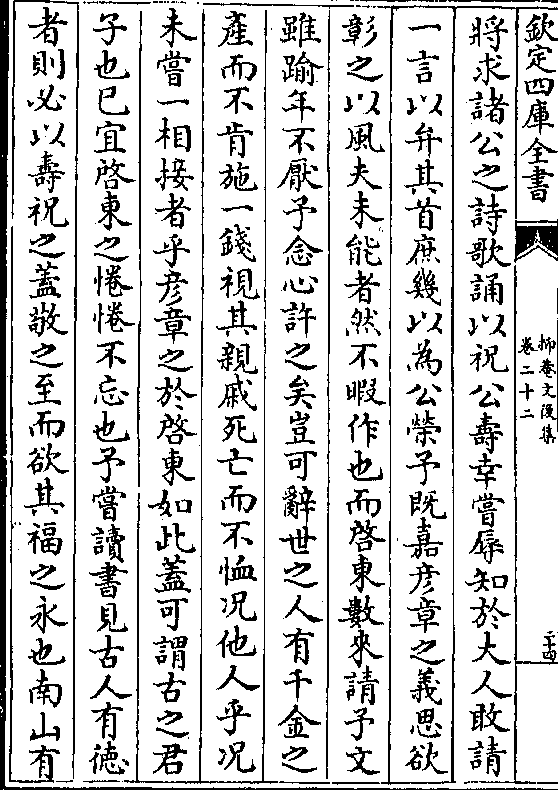 欽定四庫全書
抑菴文後集
卷二十二
二十四
將求諸公之詩歌誦以祝公壽幸嘗辱知於大人敢請
一言以弁其首庶幾以為公榮予既嘉彦章之義思欲
彰之以風夫未能者然不暇作也而啓東數來請予文
雖踰年不厭予念心許之矣豈可辭世之人有千金之
產而不肯施一錢視其親戚死亡而不恤况他人乎况
未嘗一相接者乎彦章之於啓東如此蓋可謂古之君
子也已宜啓東之惓惓不忘也予嘗讀書見古人有徳
者則必以壽祝之蓋敬之至而欲其福之永也南山有